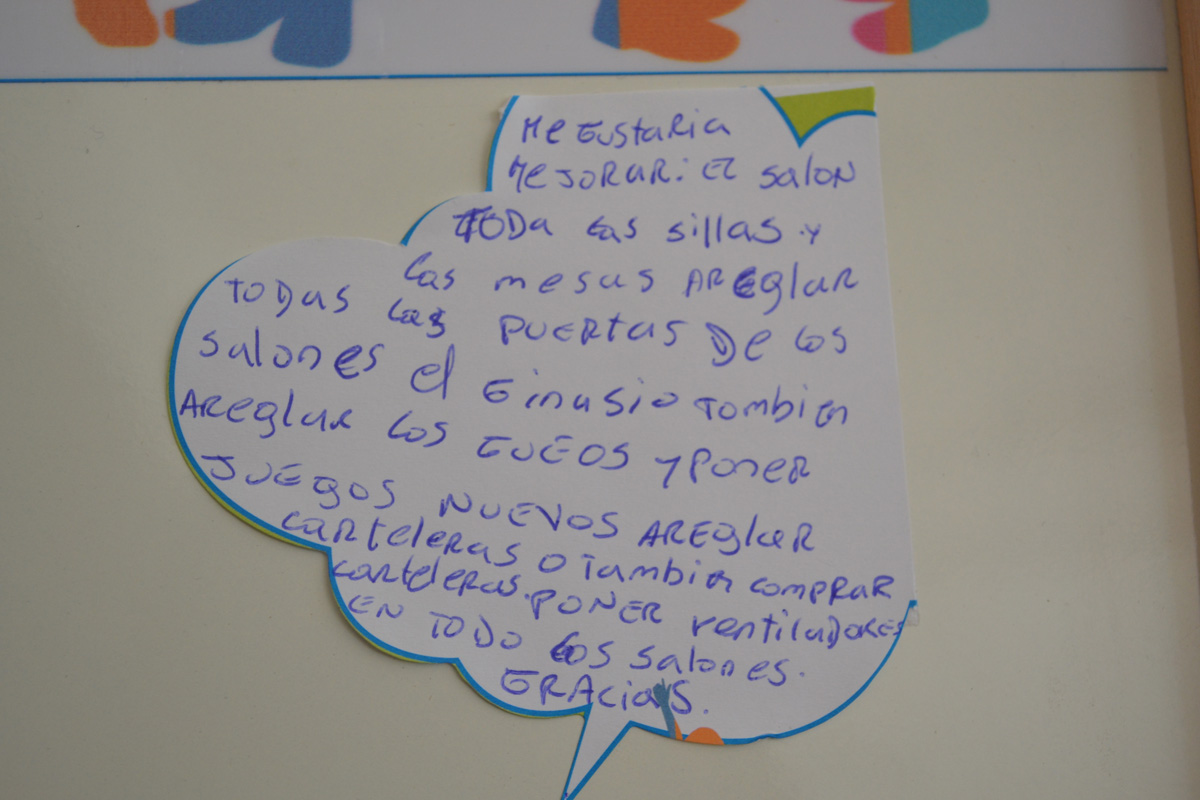 Me GustaRia
MeJORAR: El salon
TODa las sillas y
las mesas AReglar
TODas las PUERtas De los
salones el Ginasio Tombien
AReglar los GUEOS y Poner
JUEgos NUEVOS AReglaR
carteleRas o Tambien comPRaR
carteleras. PONER ventilaDORes
EN TODO los salones.
GRAcias.